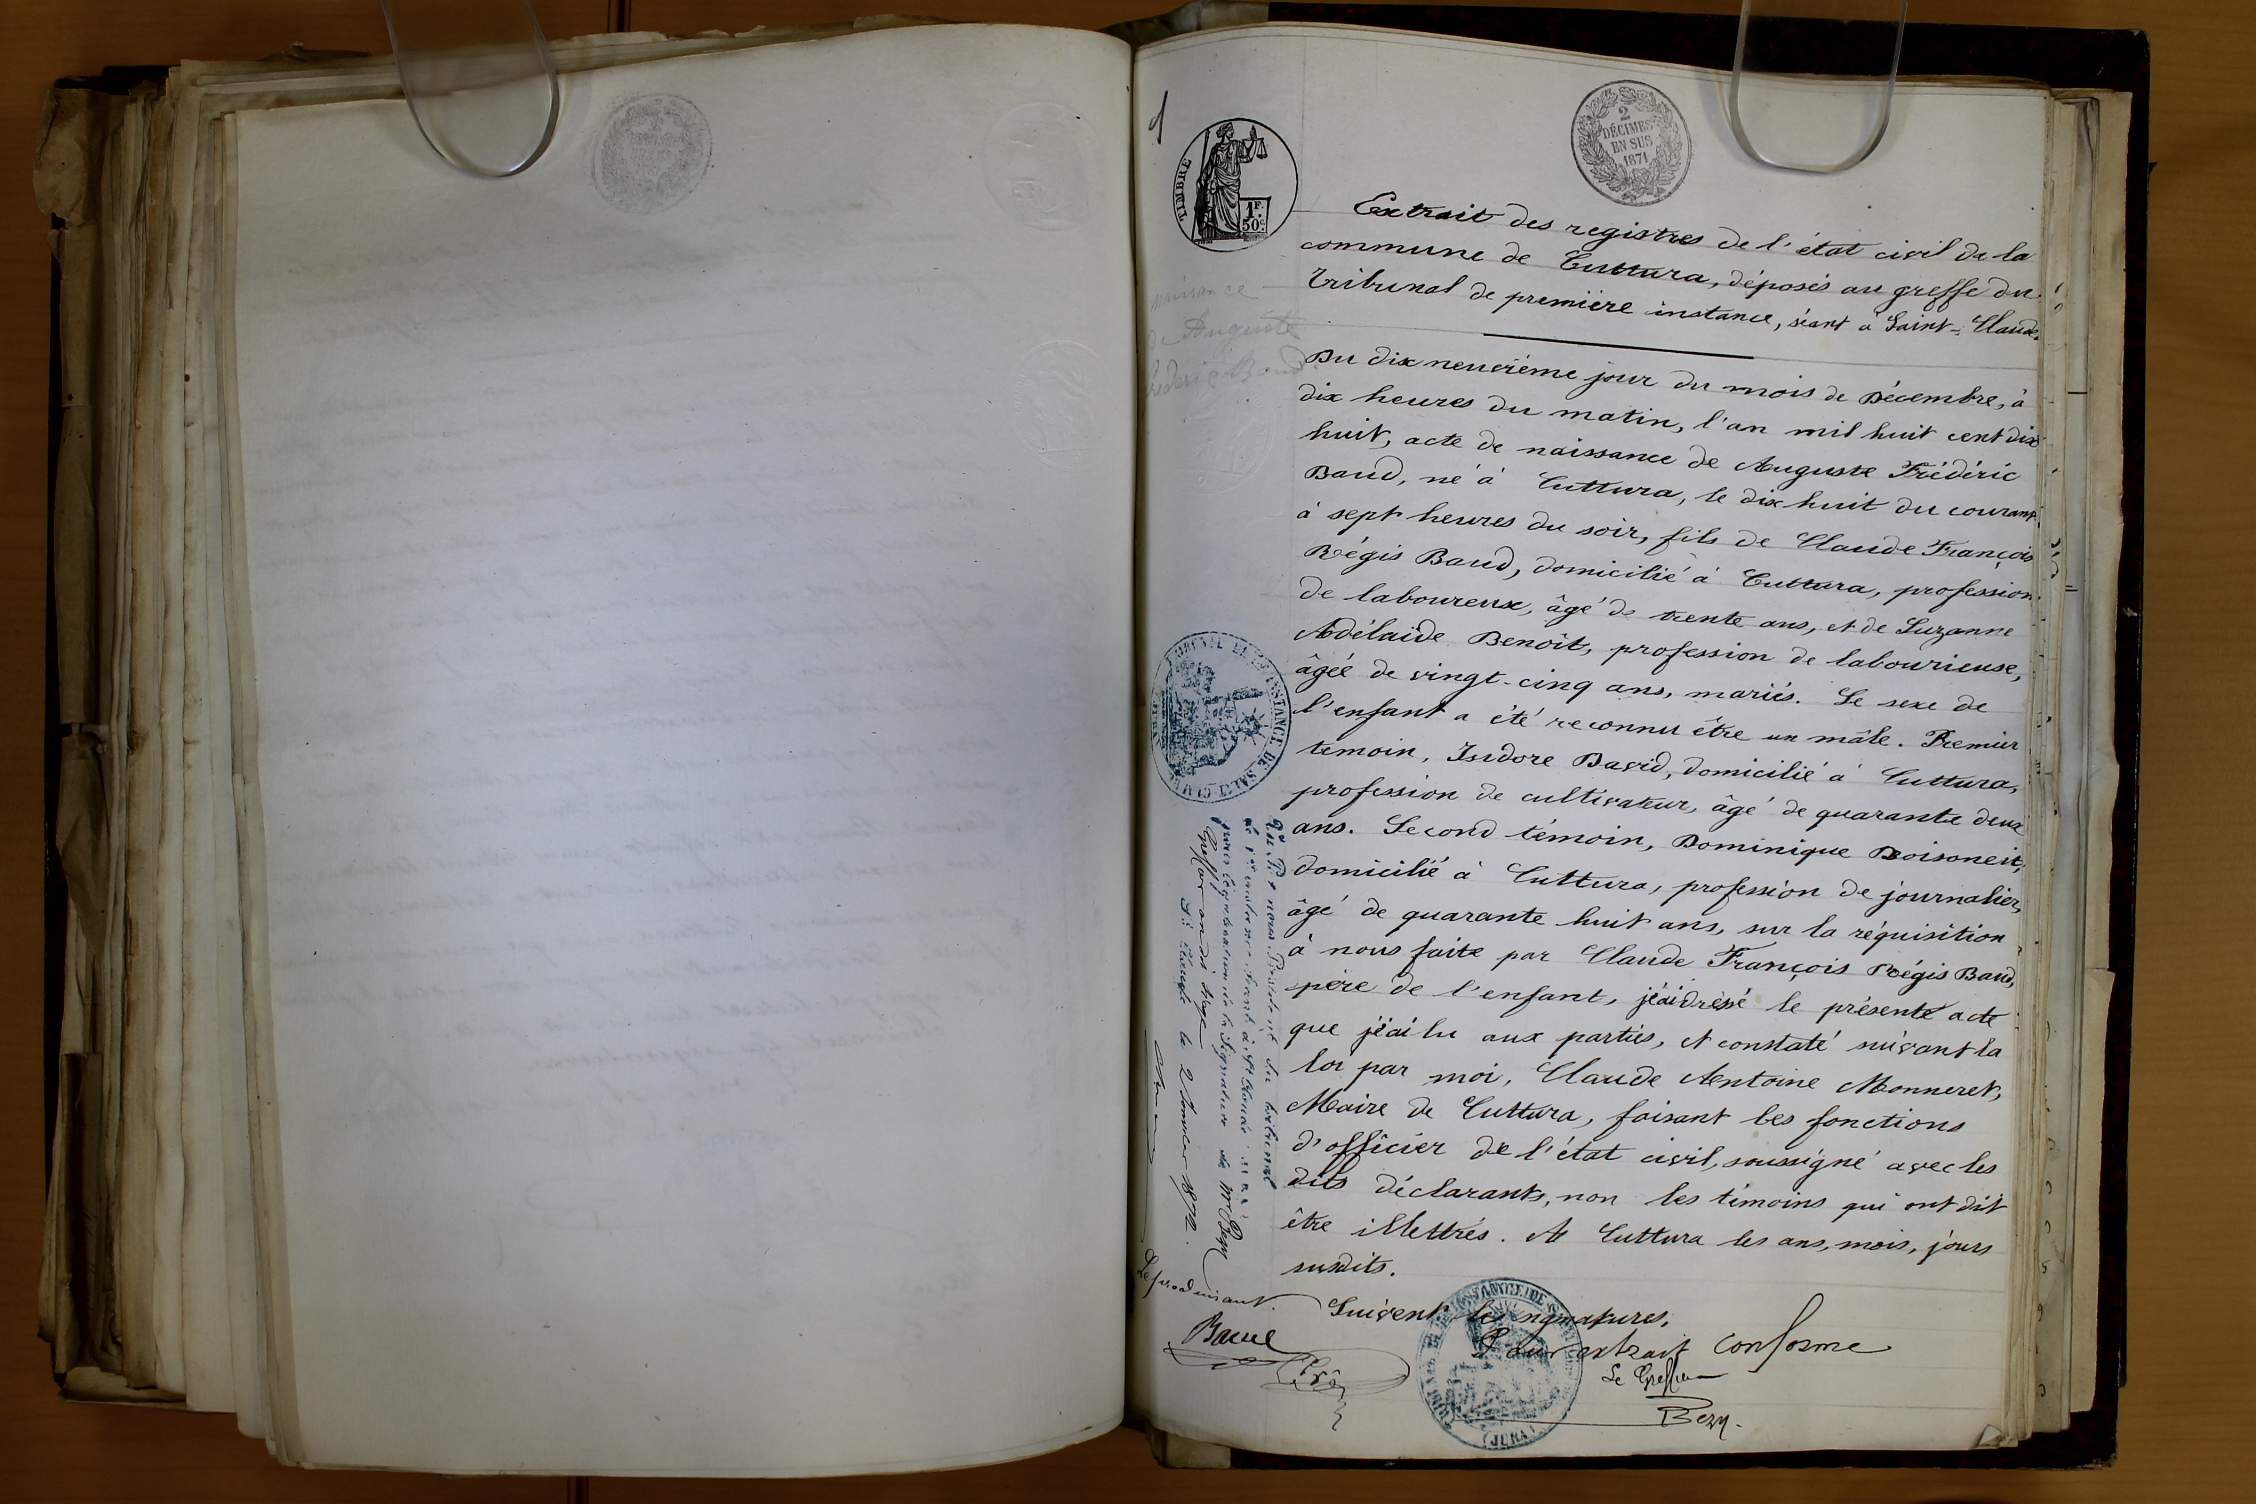 1
TIMBRE
1F.
50c.
2
DÉCIMES
EN SUS
1871
Extrait des registres de l'état civil de la
commune de Cuttura, déposés au greffe du
Tribunal de première instance, séant à Saint-Claude.
naissance
de Auguste
Frédéric Baud
Du dix neuvième jour du mois de Décembre, à
dix heures du matin, l'an mil huit cent dix
huit, acte de naissance de Auguste Frédéric
Baud, né à Cuttura, le dix huit du courant
à sept heures du soir, fils de Claude François
Régis Baud, domicilié à Cuttura, profession
de laboureux, âgé de trente ans, et de Suzanne
Adélaïde Benoît, profession de labourieuse,
âgée de vingt-cinq ans, mariés. Le sexe de
l'enfant a été reconnu être un mâle. Premier
temoin, Isidore David, domicilié à Cuttura,
profession de cultivateur, âgé de quarante deux
ans. Second témoin, Dominique
domicilié à Cuttura, profession de journalier,
âgé de quarante huit ans, sur la réquisition
à nous faite par Claude François Régis Baud,
père de l'enfant, j'ai dréssé le présente acte
que j'ai lu aux parties, et constaté suivant la
loi par moi, Claude Antoine Monneret,
Maire de Cuttura, faisant les fonctions
d'officier de l'état civil, soussigné avec les
dits déclarants, non les témoins qui ont dit
être illettrés. A Cuttura les ans, mois, jours
susdits.
Suivent les signatures.
Pour extrait conforme
Le Greffier
Bezy.
(JURA)
INSTANCE DE
nous, Président du tribunal
de 1re instance séant à St Claude
pour légalisation de la Signature de Mr Bezy
Greffier
St Claude le 2 Janvier 1872.
Le produisant.